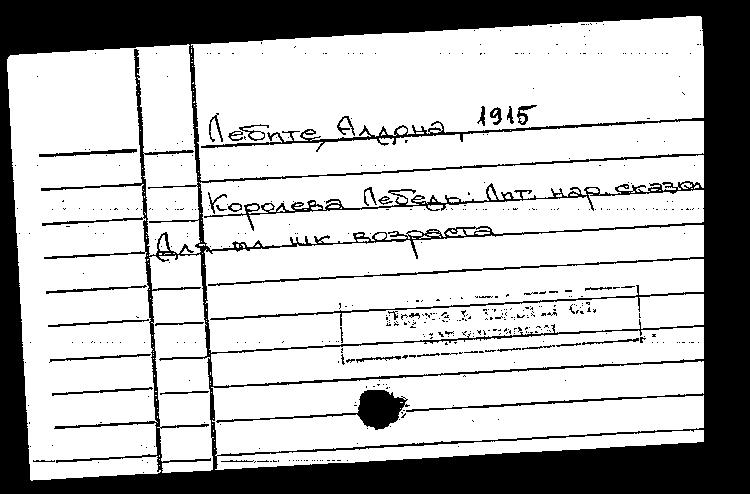 Лебите, Алдона, 1915
Королева Лебедь: Лит. нар. сказки
Для мл. шк. возраста
сп.